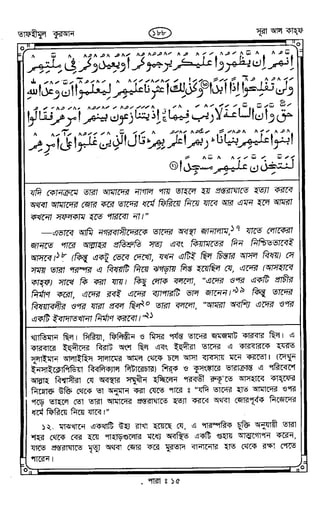 তাফহীমুল কুরআন
১৮৮
সূরা আল কাহ্ফ
إِنَّهُمْ إِنْ يَّظْهَرُوْا عَلَيْكُمْ يَرْجُمُوْكُمْ اَوْ يُعِيْدُوْكُمْ فِىْ مِلَّتِهِمْ
وَلَنْ تُفْلِحُوْٓا اِذًا اَبَدًا ۝ وَكَذٰلِكَ اَعْثَرْنَا عَلَيْهِمْ لِيَعْلَمُوْٓا اَنَّ وَعْدَ اللهِ
حَقٌّ وَّاَنَّ السَّاعَةَ لَارَيْبَ فِيْهَا اِذْ يَتَنَازَعُوْنَ بَيْنَهُمْ اَمْرَهُمْ فَقَالُوا
ابْنُوْا عَلَيْهِمْ بُنْيَانًا رَبُّهُمْ اَعْلَمُ بِهِمْ قَالَ الَّذِيْنَ غَلَبُوْا عَلٰٓى اَمْرِهِمْ
لَنَتَّخِذَنَّ عَلَيْهِمْ مَّسْجِدًا ۝
যদি কোনক্রমে তারা আমাদের নাগাল পায় তাহলে হয় প্রস্তরাঘাতে হত্যা করবে
অথবা আমাদের জোর করে তাদের ধর্মে ফিরিয়ে নিয়ে যাবে আর এমন হলে আমরা
কখনো সফলকাম হতে পারবো না।”
—এভাবে আমি নগরবাসীদেরকে তাদের অবস্থা জানালাম,১৭ যাতে লোকেরা
জানতে পারে আল্লাহর প্রতিশ্রুতি সত্য এবং কিয়ামতের দিন নিশ্চিতভাবেই
আসবে।১৮ (কিন্তু একটু ভেবে দেখো, যখন এটিই ছিল চিন্তার আসল বিষয়) সে
সময় তারা পরস্পর এ বিষয়টি নিয়ে ঝগড়ায় লিপ্ত হয়েছিল যে, এদের (আসহাবে
কাহ্ফ) সাথে কি করা যায়। কিছু লোক বললো, “এদের ওপর একটি প্রাচীর
নির্মাণ করো, এদের রবই এদের ব্যাপারটি ভাল জানেন।”১৯ কিন্তু তাদের
বিষয়াবলীর ওপর যারা প্রবল ছিল২০ তারা বললো, “আমরা অবশ্যি এদের ওপর
একটি ইবাদাতখানা নির্মাণ করবো।”২১
খ্যাতিমান ছিল। সিরিয়া, ফিলিস্তীন ও মিসর পর্যন্ত তাদের জমজমাট কারবার ছিল। এ
কারবারে ইহুদীদের বিরাট অংশ ছিল এবং ইহুদীরা তাদের এ কারবারকে হযরত
সুলাইমান আলাইহিস সালামের আমল থেকে চলে আসা ব্যবসায় মনে করতো। (দেখুন
ইনসাইক্লোপিডিয়া বিবলিক্যাল লিটারেচার) শির্ক ও কুসংস্কারে ভারাক্রান্ত এ পরিবেশে
আল্লাহ বিশ্বাসীরা যে অবস্থার সম্মুখীন হচ্ছিলেন পরবর্তী রুকূ’তে আসহাবে কাহ্ফের
নিম্নোক্ত উক্তি থেকে তা অনুমান করা যেতে পারে : “যদি তাদের হাত আমাদের ওপর
পড়ে তাহলে তো তারা আমাদের প্রস্তরাঘাতে হত্যা করবে অথবা জোরপূর্বক নিজেদের
ধর্মে ফিরিয়ে নিয়ে যাবে।”
১২. মাঝখানে একথাটি উহ্য রাখা হয়েছে যে, এ পারস্পরিক চুক্তি অনুযায়ী তারা
শহর থেকে বের হয়ে পাহাড়গুলোর মধ্যে অবস্থিত একটি গুহায় আত্মগোপন করেন,
যাতে প্রস্তরাঘাতে মৃত্যু অথবা জোর করে মুরতাদ বানানোর হাত থেকে রক্ষা পেতে
পারেন।
পারা : ১৫